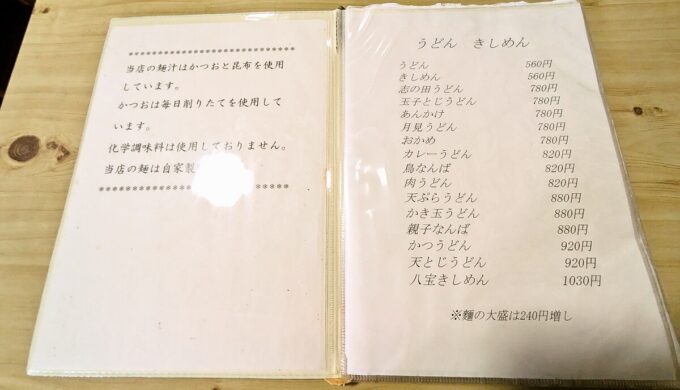 ************************
当店の麺汁はかつおと昆布を使用
しています。
かつおは毎日削りたてを使用して
います。
化学調味料は使用しておりません。
当店の麺は自家製
************************
うどん きしめん
うどん 560円
きしめん 560円
志の田うどん 780円
玉子とじうどん 780円
あんかけ 780円
月見うどん 780円
おかめ 780円
カレーうどん 820円
鳥なんば 820円
肉うどん 820円
天ぷらうどん 880円
かき玉うどん 880円
親子なんば 880円
かつうどん 920円
天とじうどん 920円
八宝きしめん 1030円
※麺の大盛は240円増し